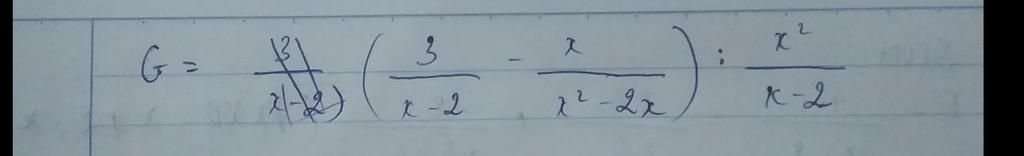 G = ( 3/(x-2) - x/(x²-2x) ) : x²/(x-2)